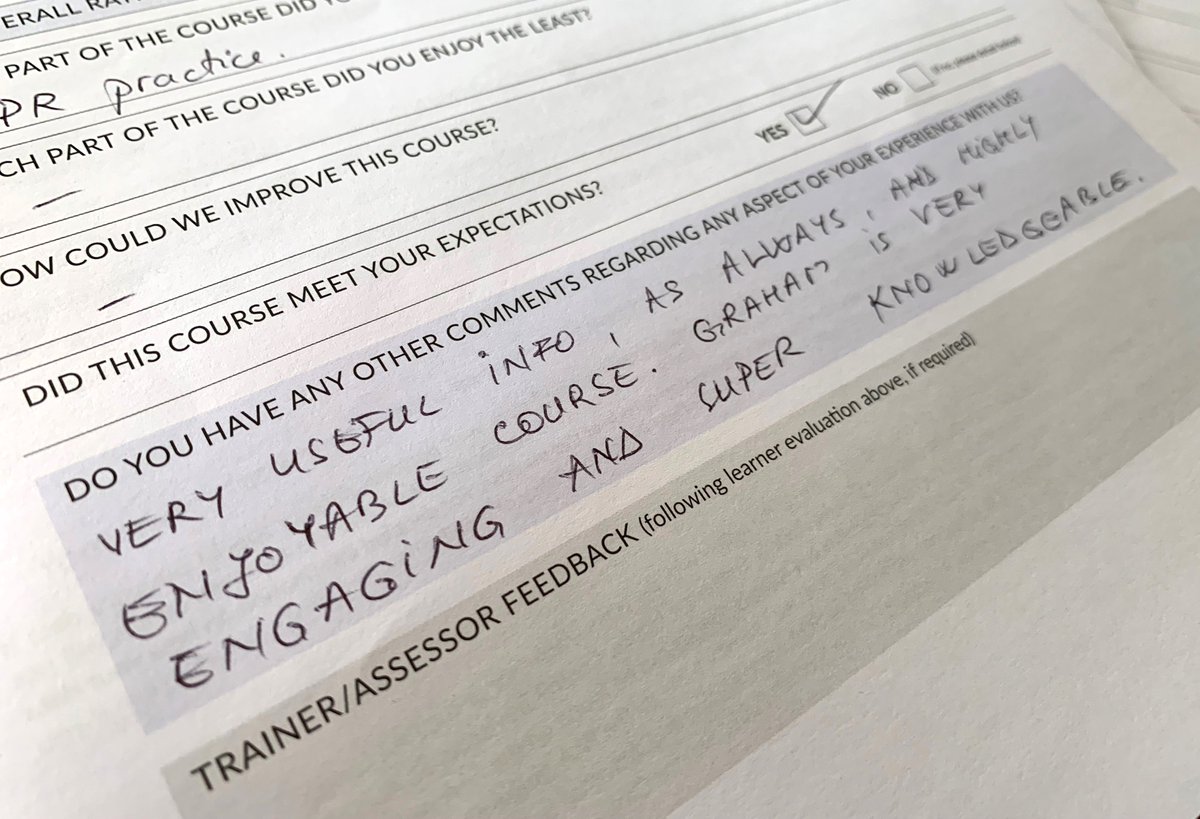 ERALL RAT
PART OF THE COURSE DID YO
PR practice.
CH PART OF THE COURSE DID YOU ENJOY THE LEAST?
—
OW COULD WE IMPROVE THIS COURSE?
—
DID THIS COURSE MEET YOUR EXPECTATIONS? YES ✓ NO (if no, please detail below)
DO YOU HAVE ANY OTHER COMMENTS REGARDING ANY ASPECT OF YOUR EXPERIENCE WITH US?
VERY USEFUL INFO, AS ALWAYS, AND HIGHLY
ENJOYABLE COURSE. GRAHAM IS VERY
ENGAGING AND SUPER KNOWLEDGEABLE.
TRAINER/ASSESSOR FEEDBACK (following learner evaluation above, if required)